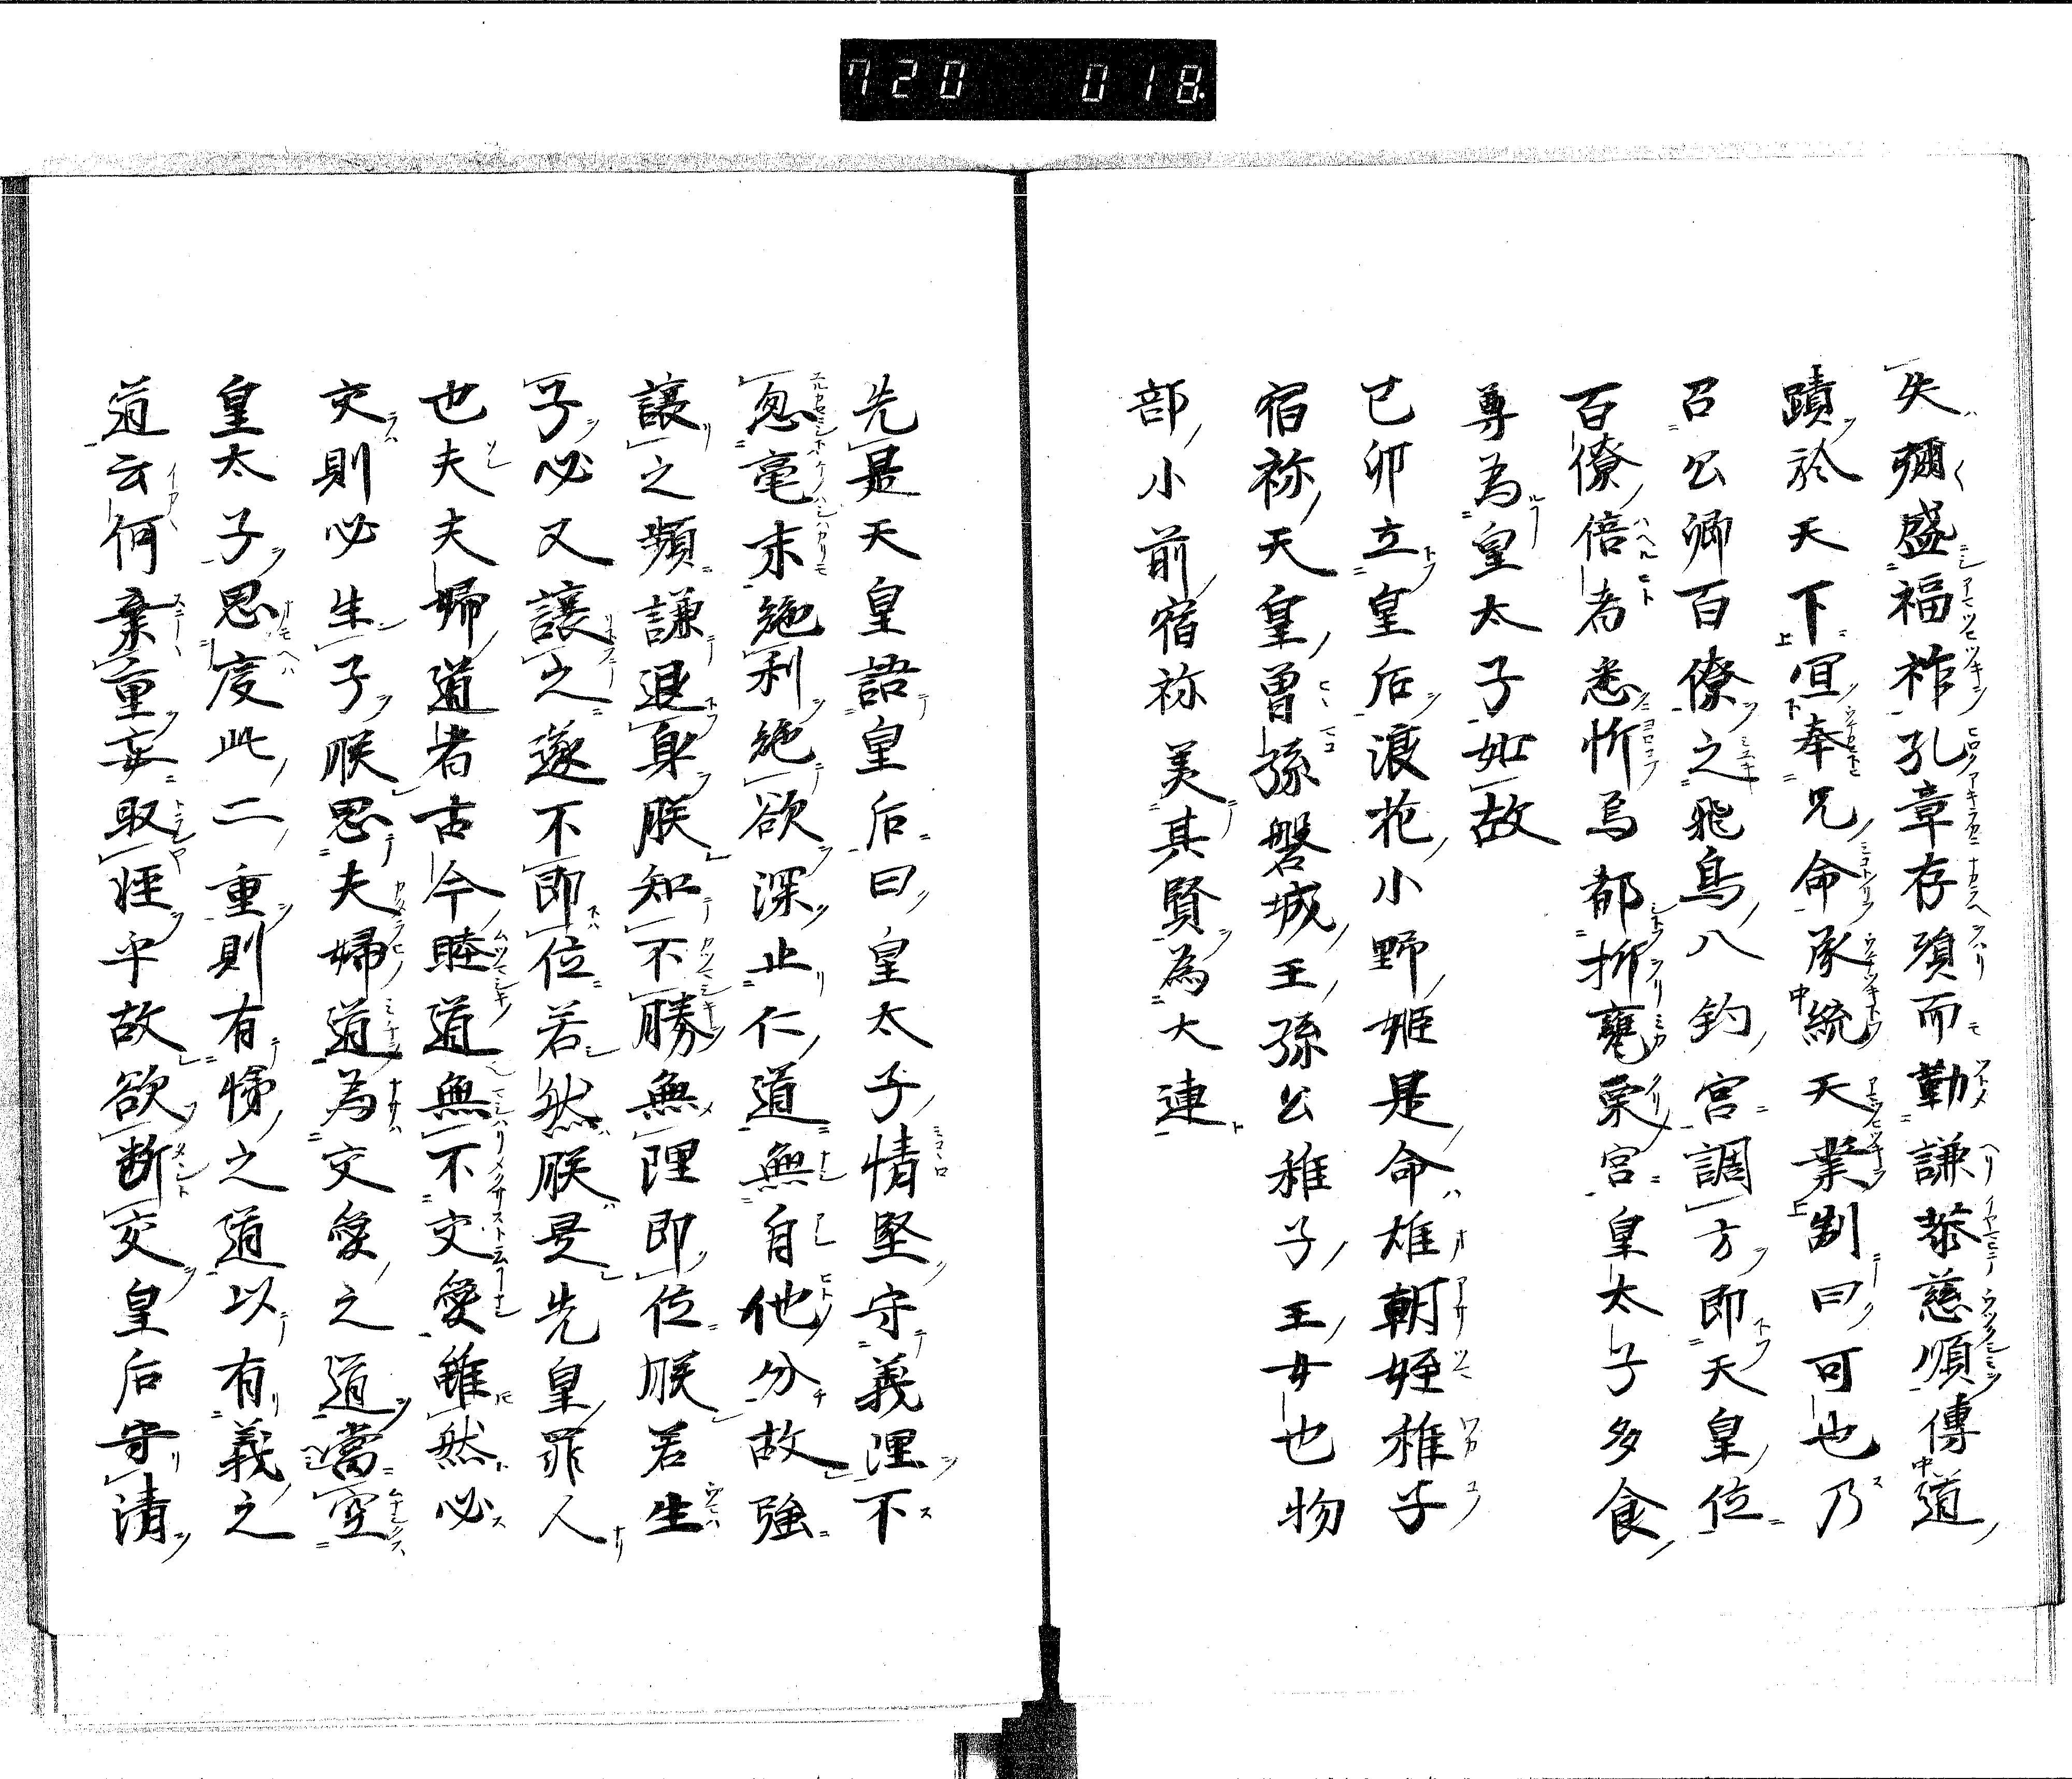 720 018
失彌盛福祚孔章存須而勤謙恭慈順傳道
蹟於天下冝奉兄命承統天業制曰可也乃
召公卿百僚之飛鳥八釣宮調方即天皇位
百僚倍者悉忻焉都折甕栗宮皇太子多食
尊為皇太子如故
已卯立皇后浪花小野姫是命雄朝姪稚子
宿祢天皇曽孫磐城王孫公稚子王女也物
部小前宿祢美其賢為大連
先是天皇語皇后曰皇太子情堅守義理不
忽毫末絶利絶欲深止仁道無自他分故強
讓之頻謙退身朕知不勝無理即位朕若生
子必又讓之遂不即位若然朕是先皇罪人
也夫夫婦道者古今睦道無不交愛雖然必
交則必生子朕思夫婦道為交愛之道當空
皇太子思度此二重則有悌之道以有義之
道云何棄重妄取輕乎故欲断交皇后守清